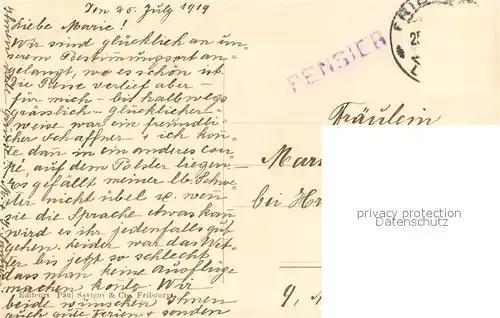 Den 25. July 1919
Liebe Marie!
Wir sind glücklich an un=
serem Bestimmungsort an=
gelangt, wo es schön ist.
Die Reise verlief aber –
für mich – bis halbwegs
grässlich – glücklicher=
weise war ein freundli=
cher Schaffner + ich kon=
te dan in ein anderes cou=
pé, auf dem Polster liegen.
Es gefällt meiner lb. Schwe=
ster nicht übel u. wen
sie die Sprache etwas kan
wird es ihr jedenfalls gut
gehen. Leider war das Wet=
ter bis jetzt so schlecht
dass man keine Ausflüge
machen konte. Wir
beide wünschen Ihnen
auch gute Ferien + senden
Editeurs Paul Savigny & Cie, Fribourg
PENSIER
FRIB
25
Fräulein
Mar
bei Hr
9,
privacy protection
Datenschutz